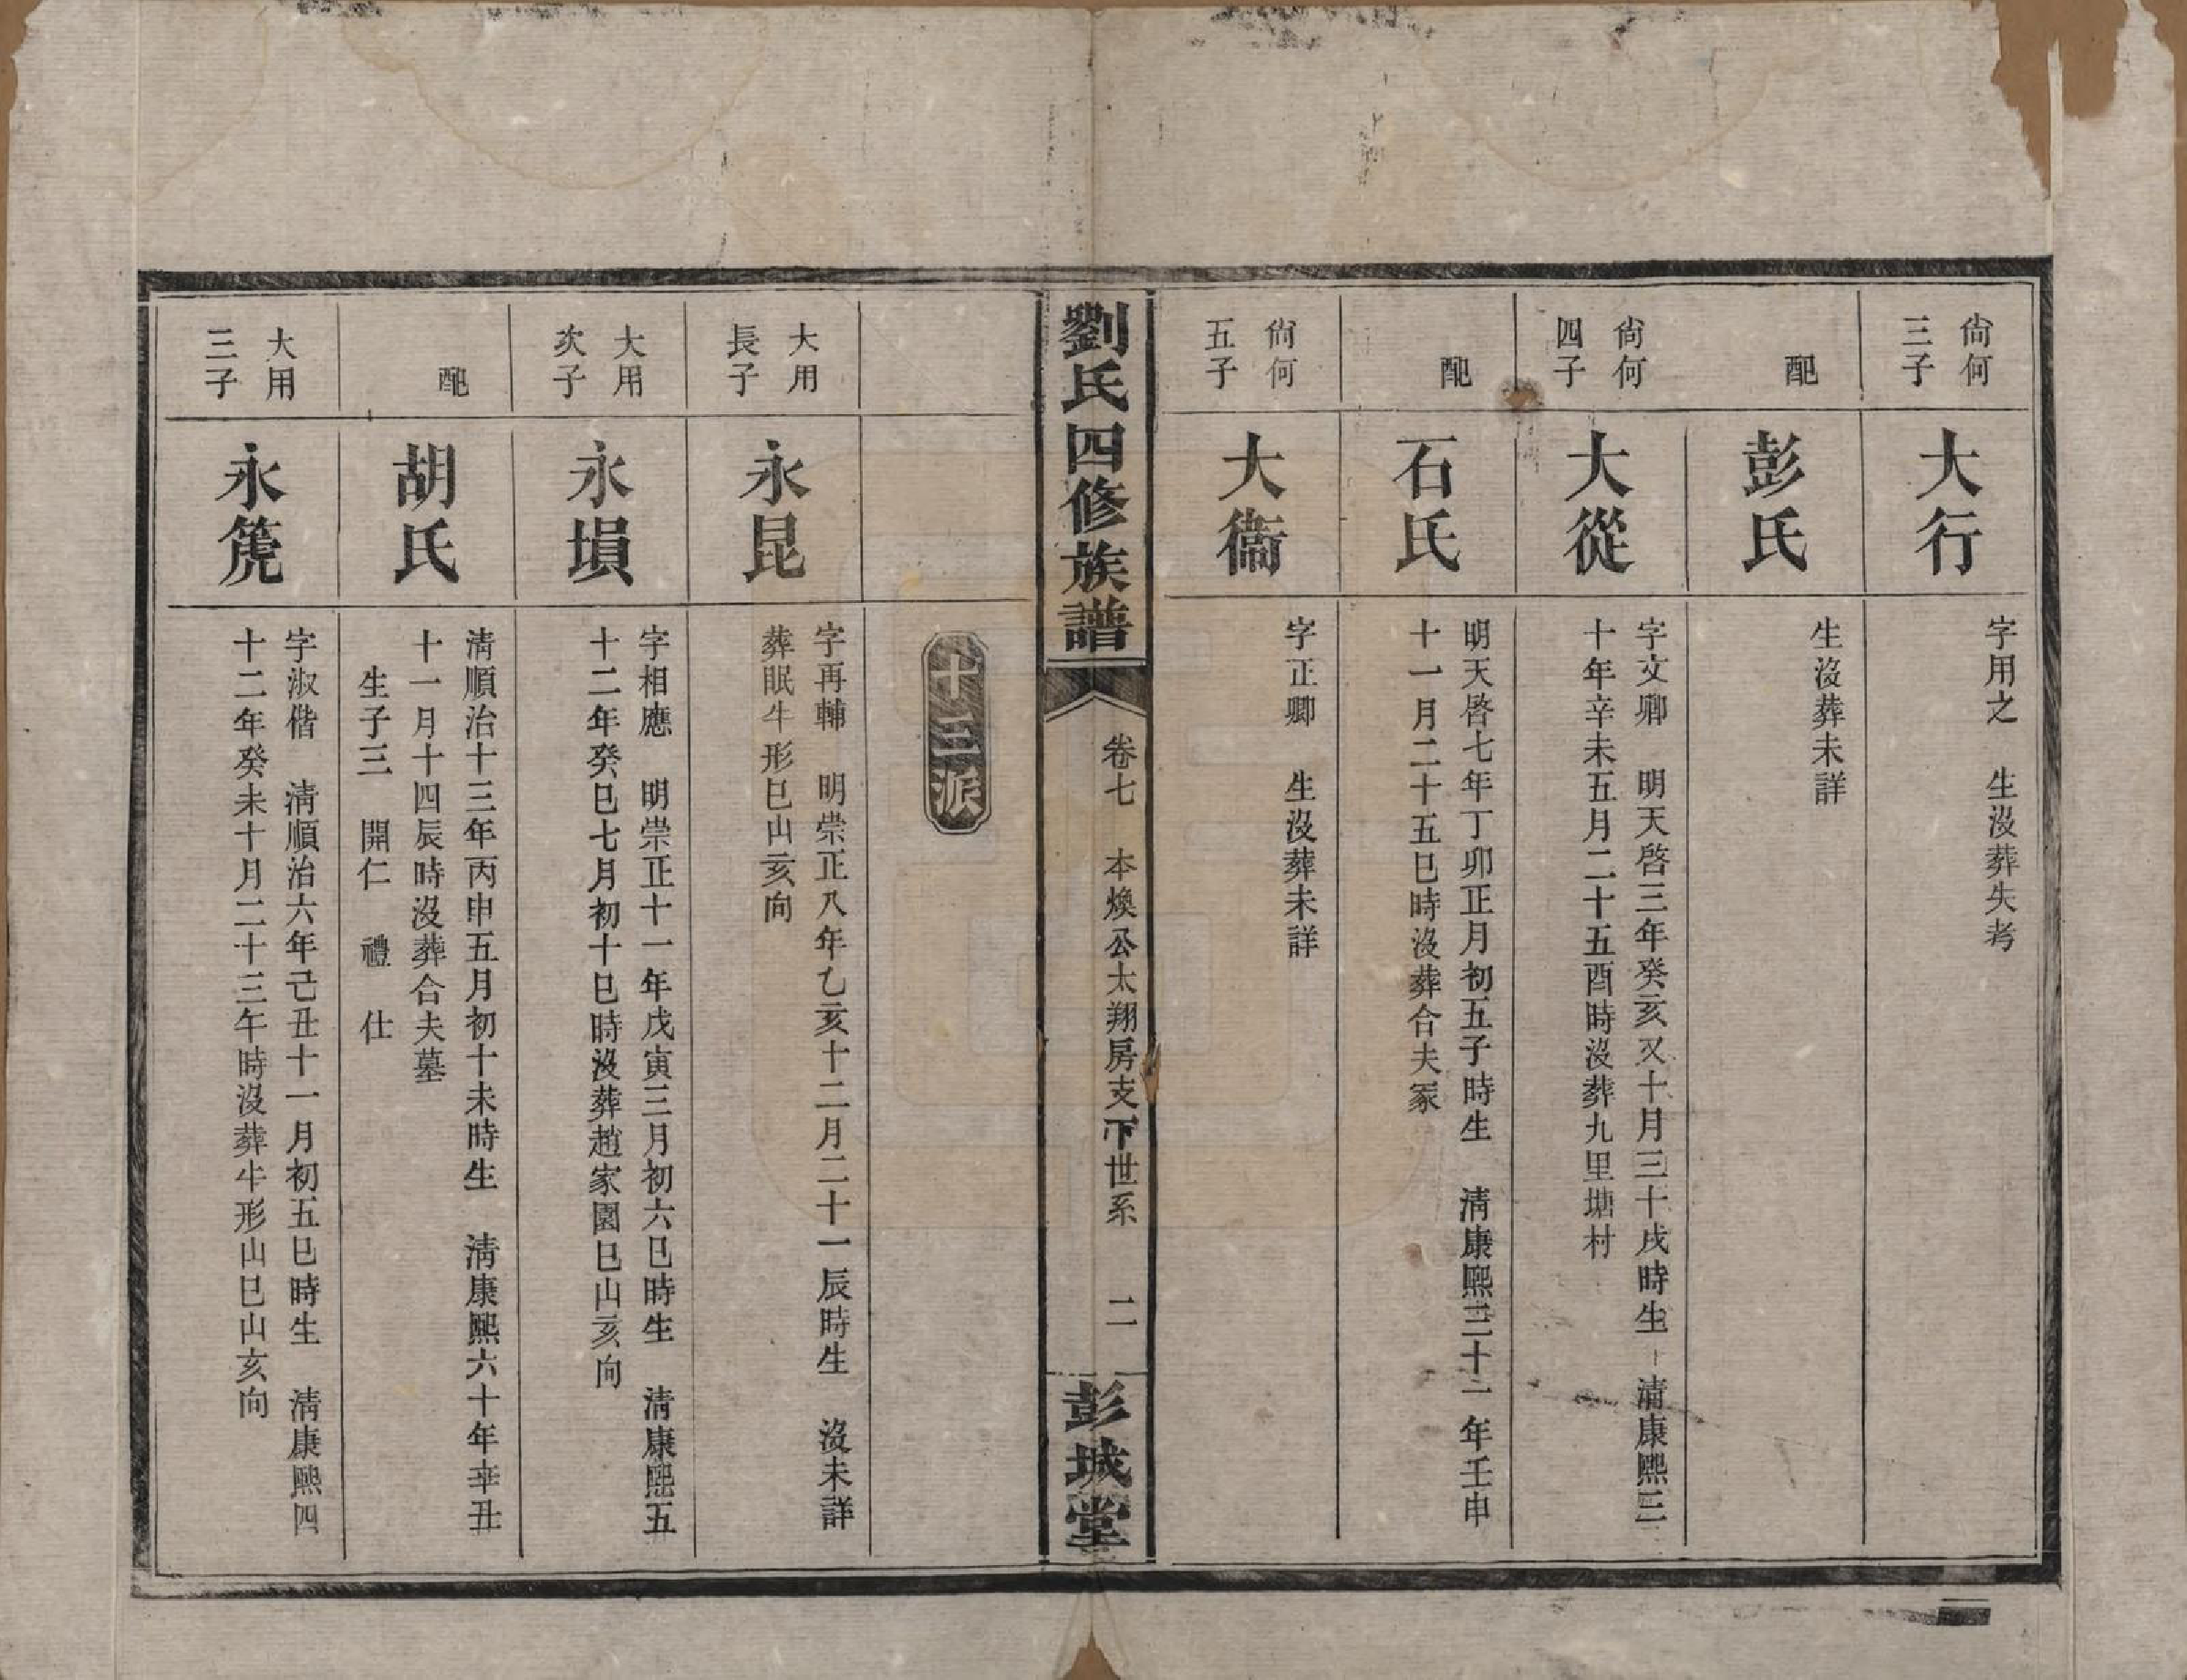 尙何
三子
大行
字用之　生沒葬失考
配
彭氏
生沒葬未詳
尙何
四子
大從
字文卿　明天啓三年癸亥又十月三十戌時生　淸康熙三
十年辛未五月二十五酉時沒葬九里塘村
配
石氏
明天啓七年丁卯正月初五子時生　淸康熙三十一年壬申
十一月二十五巳時沒葬合夫冢
尙何
五子
大衞
字正卿　生沒葬未詳
劉氏四修族譜
卷七　本煥公太翔房支下世系　二
彭城堂
十三派
大用
長子
永昆
字再輔　明崇正八年乙亥十二月二十一辰時生　沒未詳
葬眠牛形巳山亥向
大用
次子
永塤
字相應　明崇正十一年戊寅三月初六巳時生　淸康熙五
十二年癸巳七月初十巳時沒葬趙家園巳山亥向
配
胡氏
淸順治十三年丙申五月初十未時生　淸康熙六十年辛丑
十一月十四辰時沒葬合夫墓
生子三　開仁　禮　仕
大用
三子
永篪
字淑偕　淸順治六年己丑十一月初五巳時生　淸康熙四
十二年癸未十月二十三午時沒葬牛形山巳山亥向